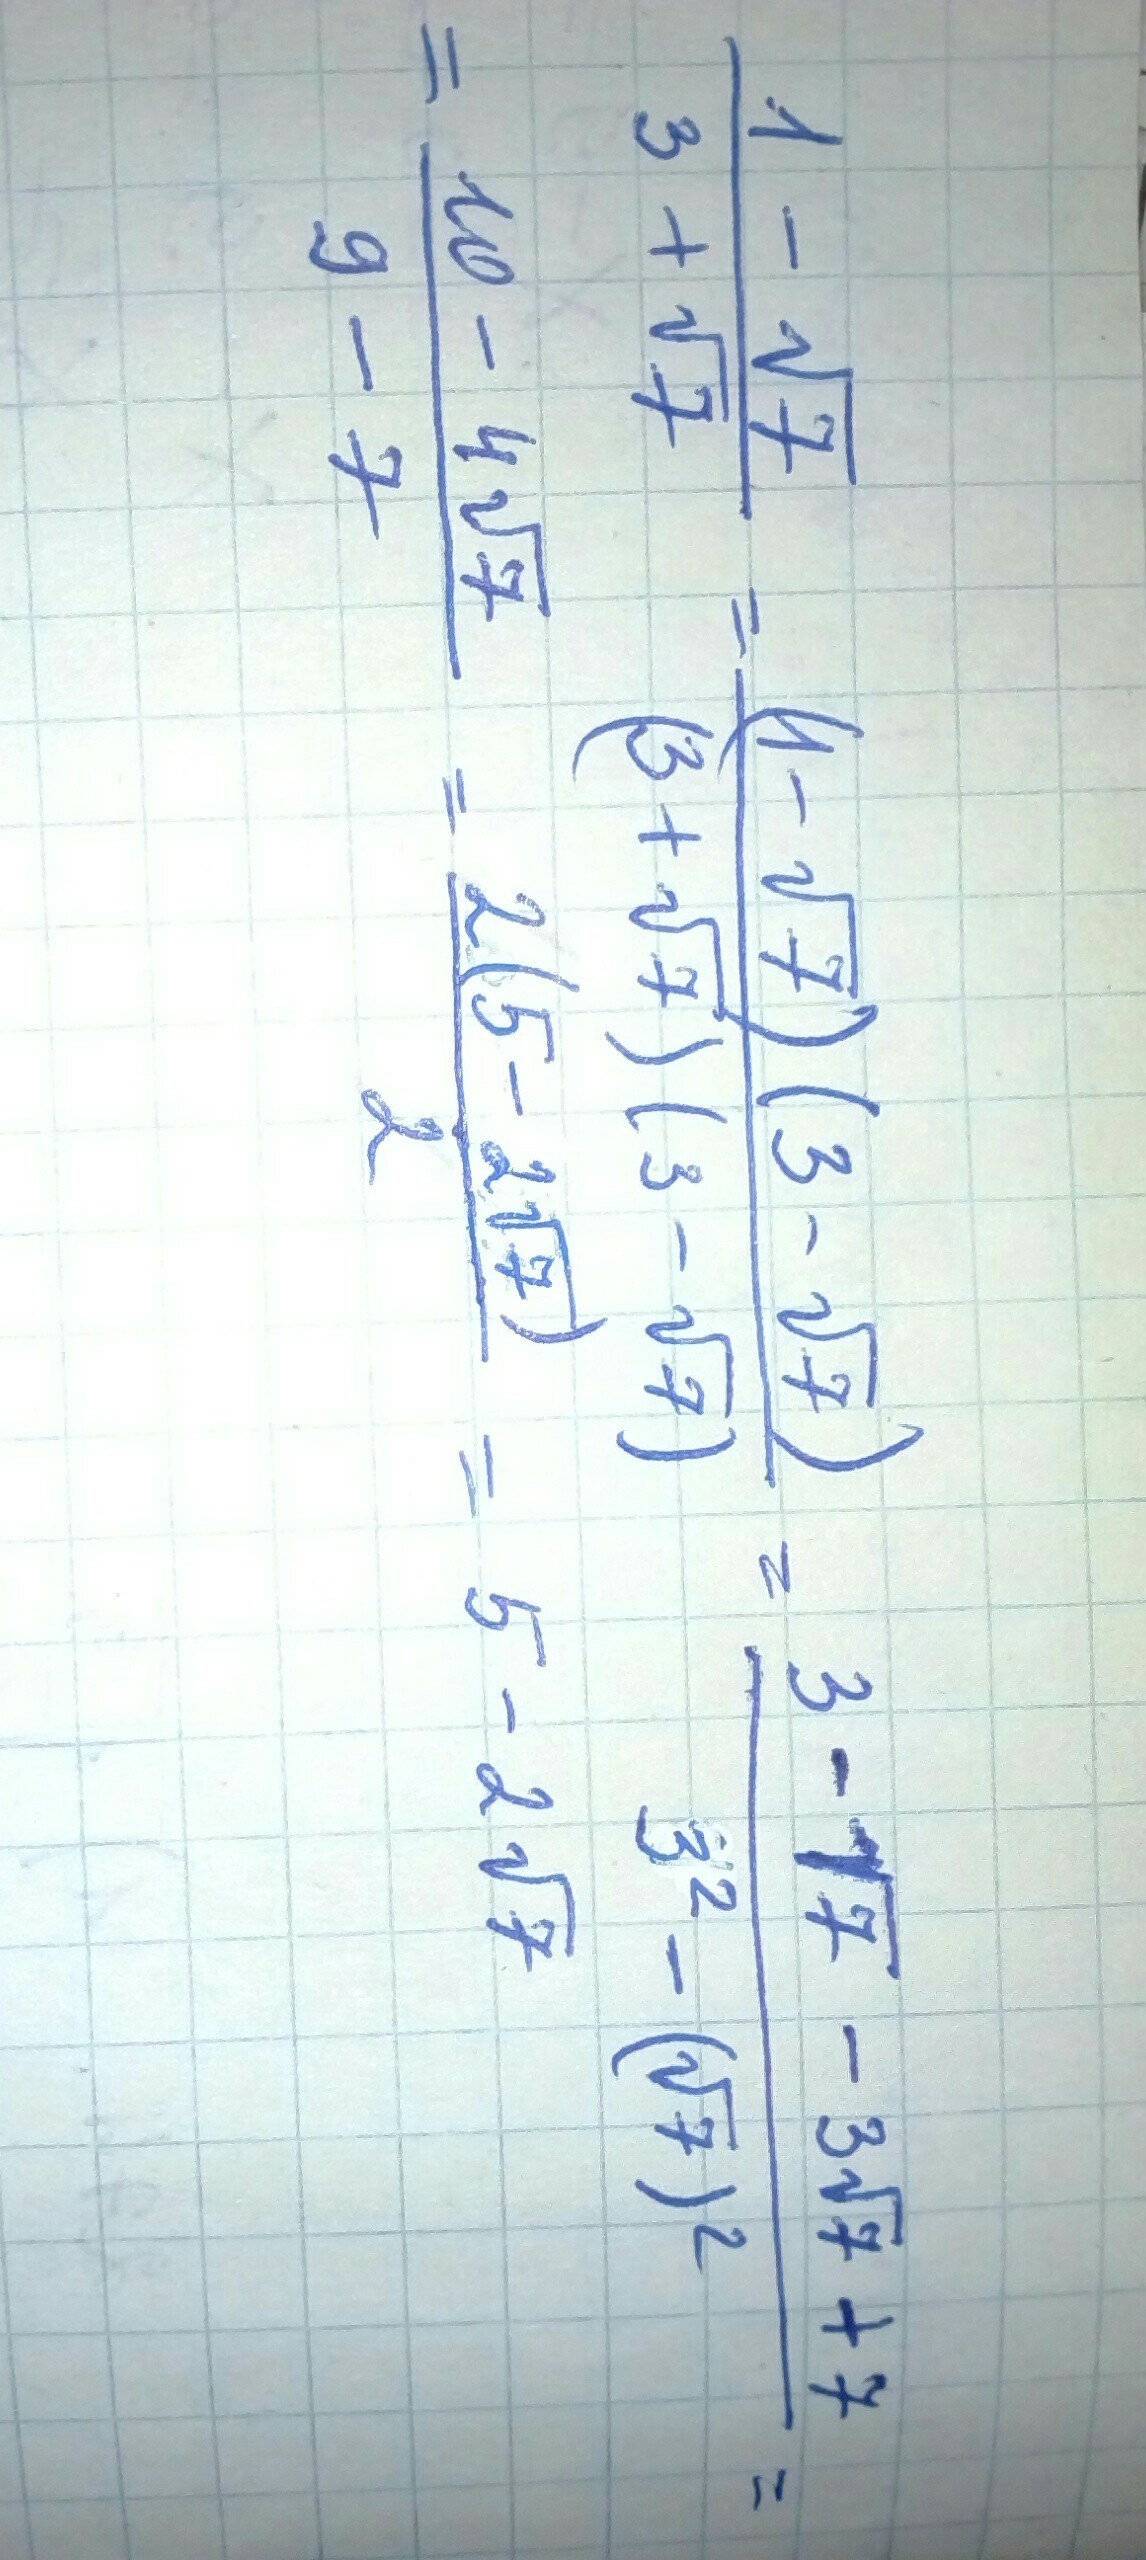 (1 - √7)/(3 + √7) = ((1 - √7)(3 - √7))/((3 + √7)(3 - √7)) = (3 - √7 - 3√7 + 7)/(3² - (√7)²) =
= (10 - 4√7)/(9 - 7) = (2(5 - 2√7))/2 = 5 - 2√7